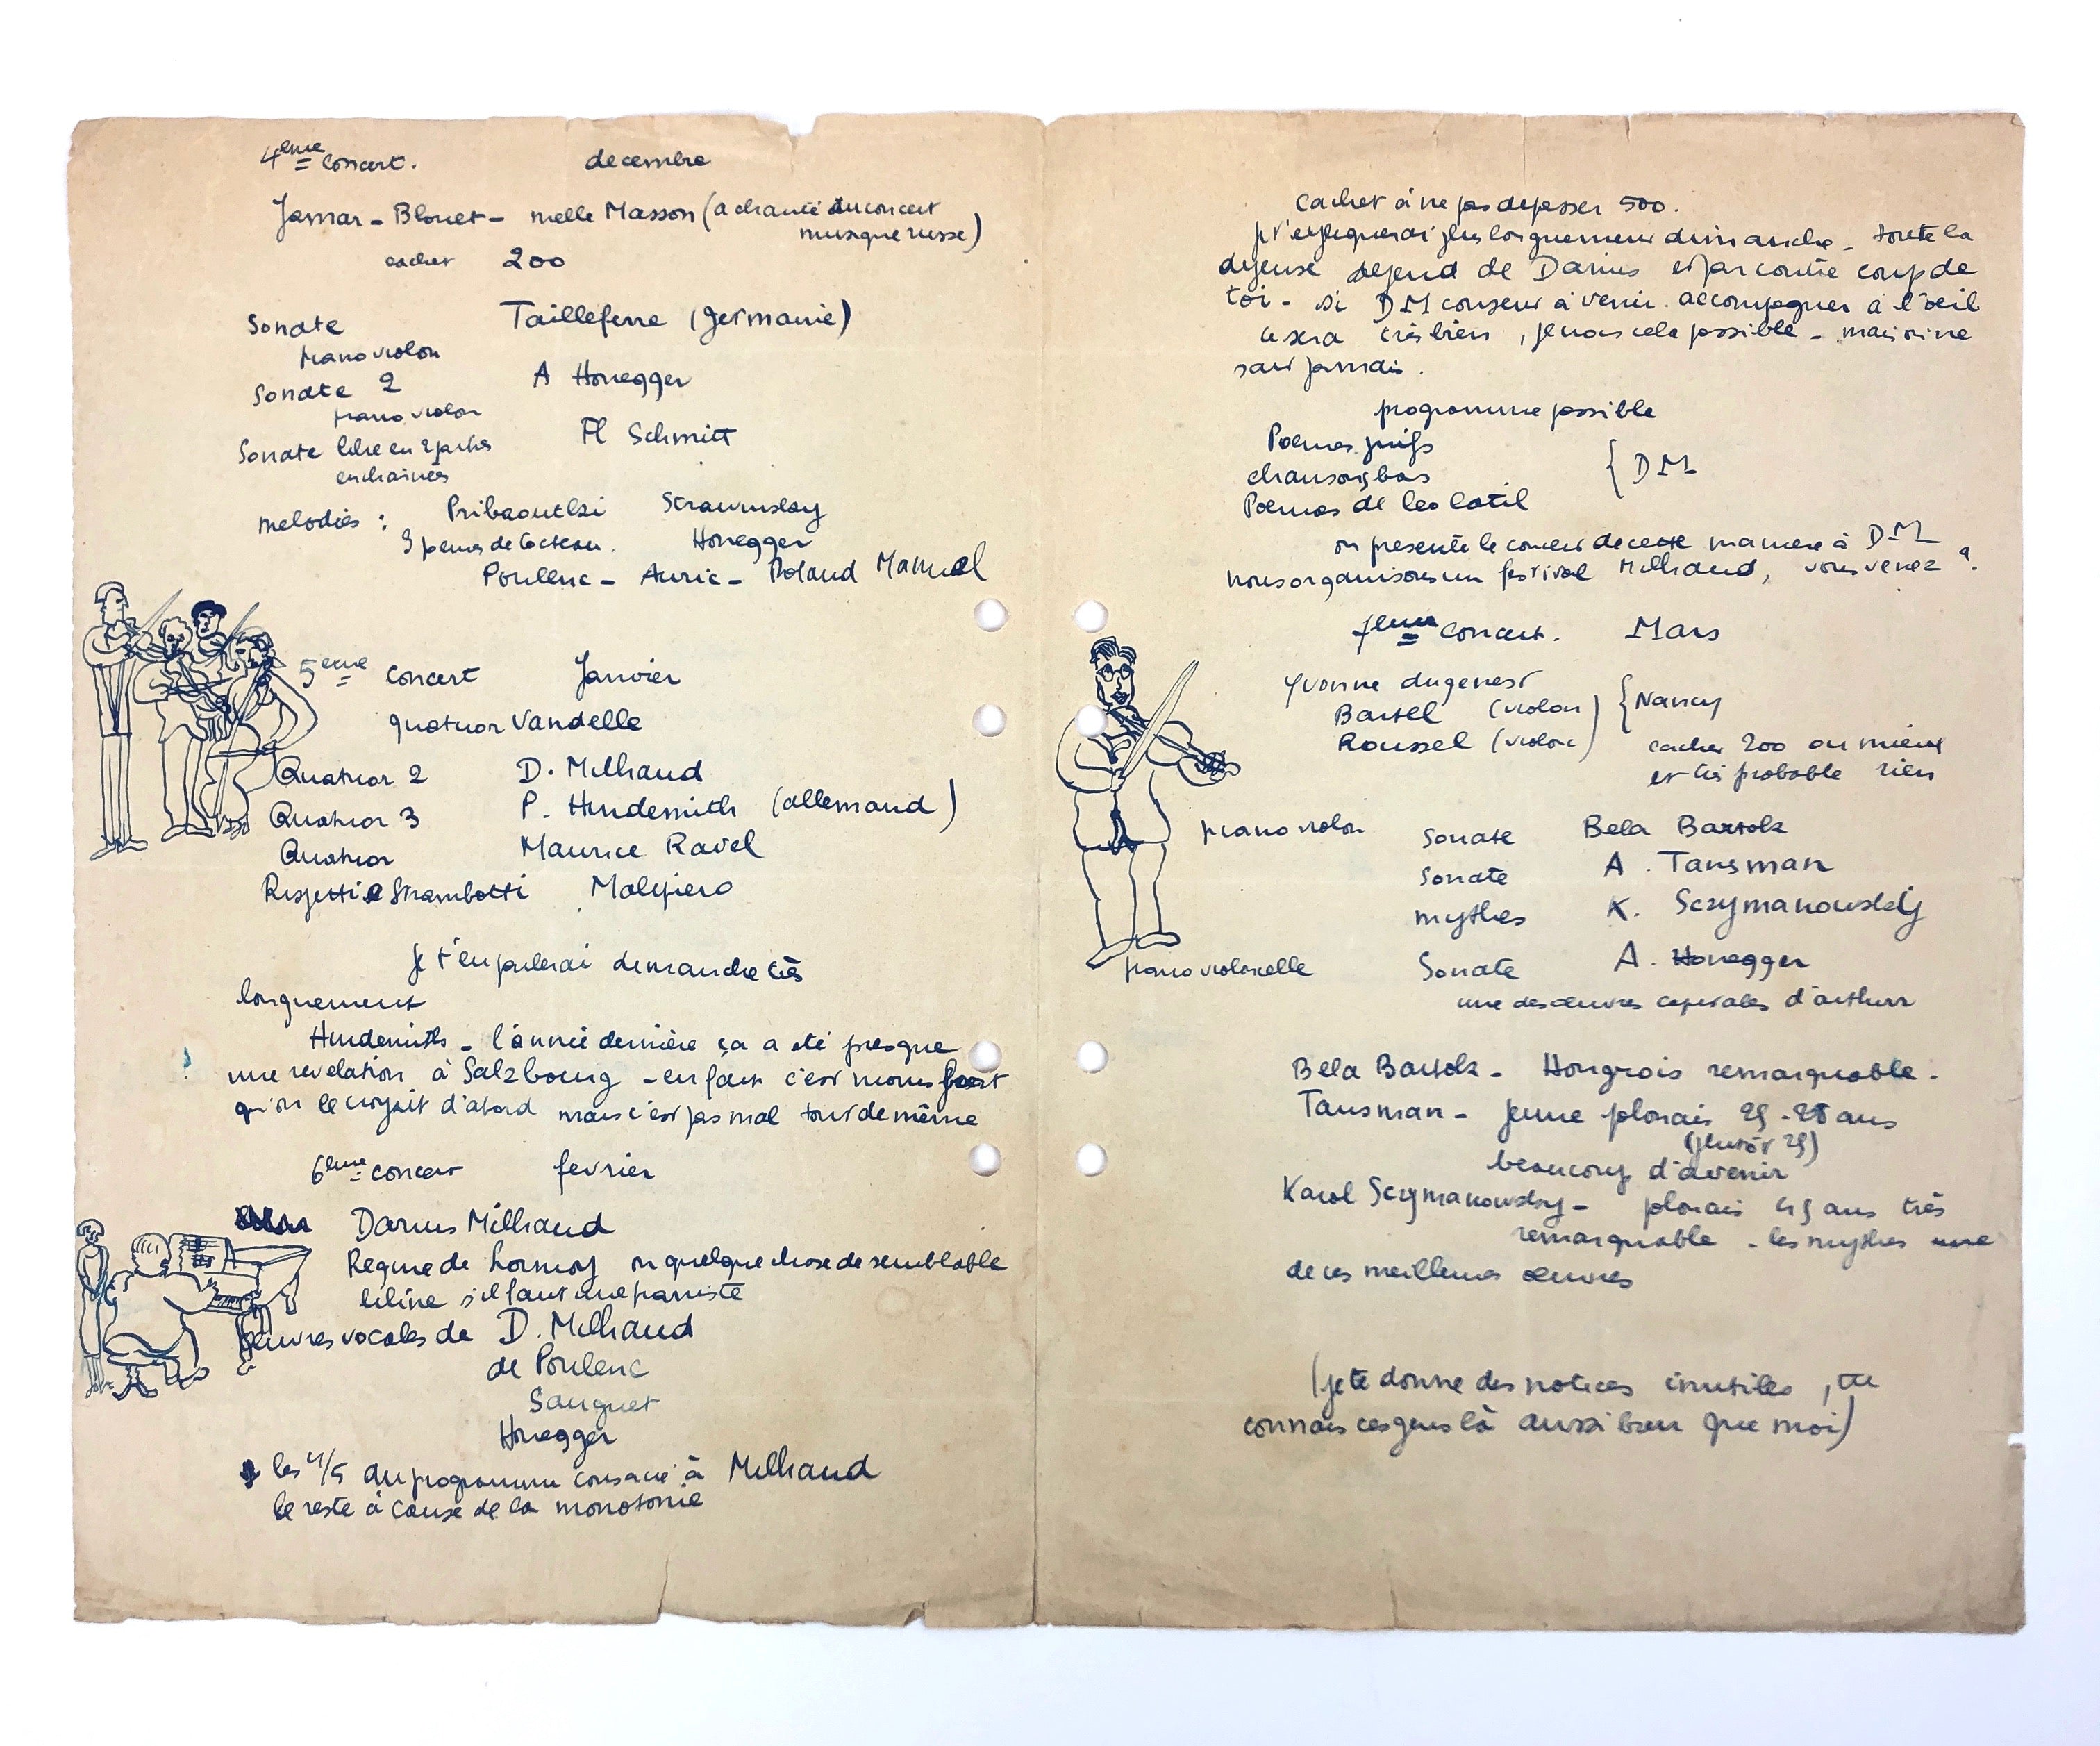 4eme concert. decembre
Jamar - Blouet - melle Masson (a chanté au concert
musique russe)
cachet 200
Sonate Tailleferre (Germanie)
piano violon
Sonate 2 A Honegger
piano violon
Sonate libre en 2 parties Fl Schmitt
enchainés
melodies : Pribaoutki Strawinsky
3 poemes de Cocteau. Honegger
Poulenc - Auric - Roland Manuel
5eme concert Janvier
quatuor Vandelle
Quatuor 2 D. Milhaud
Quatuor 3 P. Hindemith (allemand)
Quatuor Maurice Ravel
Rispetti e Strambotti Malipiero
Je t'en parlerai dimanche très
longuement
Hindemith - l'année dernière ça a été presque
une revelation à Salzbourg - en fait c'est moins fort
qu'on le croyait d'abord mais c'est pas mal tout de même
6eme concert fevrier
Darius Milhaud
Regine de Lormoy ou quelque chose de semblable
liline s'il faut une pianiste
Oeuvres vocales de D. Milhaud
de Poulenc
Sauguet
Honegger
les 4/5 du programme consacré à Milhaud
le reste à cause de la monotonie
cachet à ne pas depasser 500.
je t'expliquerai plus longuement dimanche - toute la
depense depend de Darius et par contre coup de
toi - si DM consent à venir accompagner à l'oeil
ce sera très bien, je crois cela possible - mais on ne
sait jamais.
programme possible
Poemes juifs
chansons bas { DM
Poemes de Leo Latil
on presente le concert de cette maniere à DM
nous organisons un festival Milhaud, vous venez ?
7eme concert. Mars
Yvonne dugenest
Bartel (violon) { Nancy
Roussel (violonc)
cachet 200 ou mieux
et très probable rien
piano violon Sonate Bela Bartok
Sonate A. Tansman
mythes K. Sczymanowsky
piano violoncelle Sonate A. Honegger
une des oeuvres capitales d'arthur
Bela Bartok - Hongrois remarquable -
Tansman - jeune polonais 25-28 ans
(plutôt 25)
beaucoup d'avenir
Karol Sczymanowsky - polonais 45 ans très
remarquable - les mythes une
de ces meilleures oeuvres
(je te donne des notices inutiles, tu
connais ces gens là aussi bien que moi)